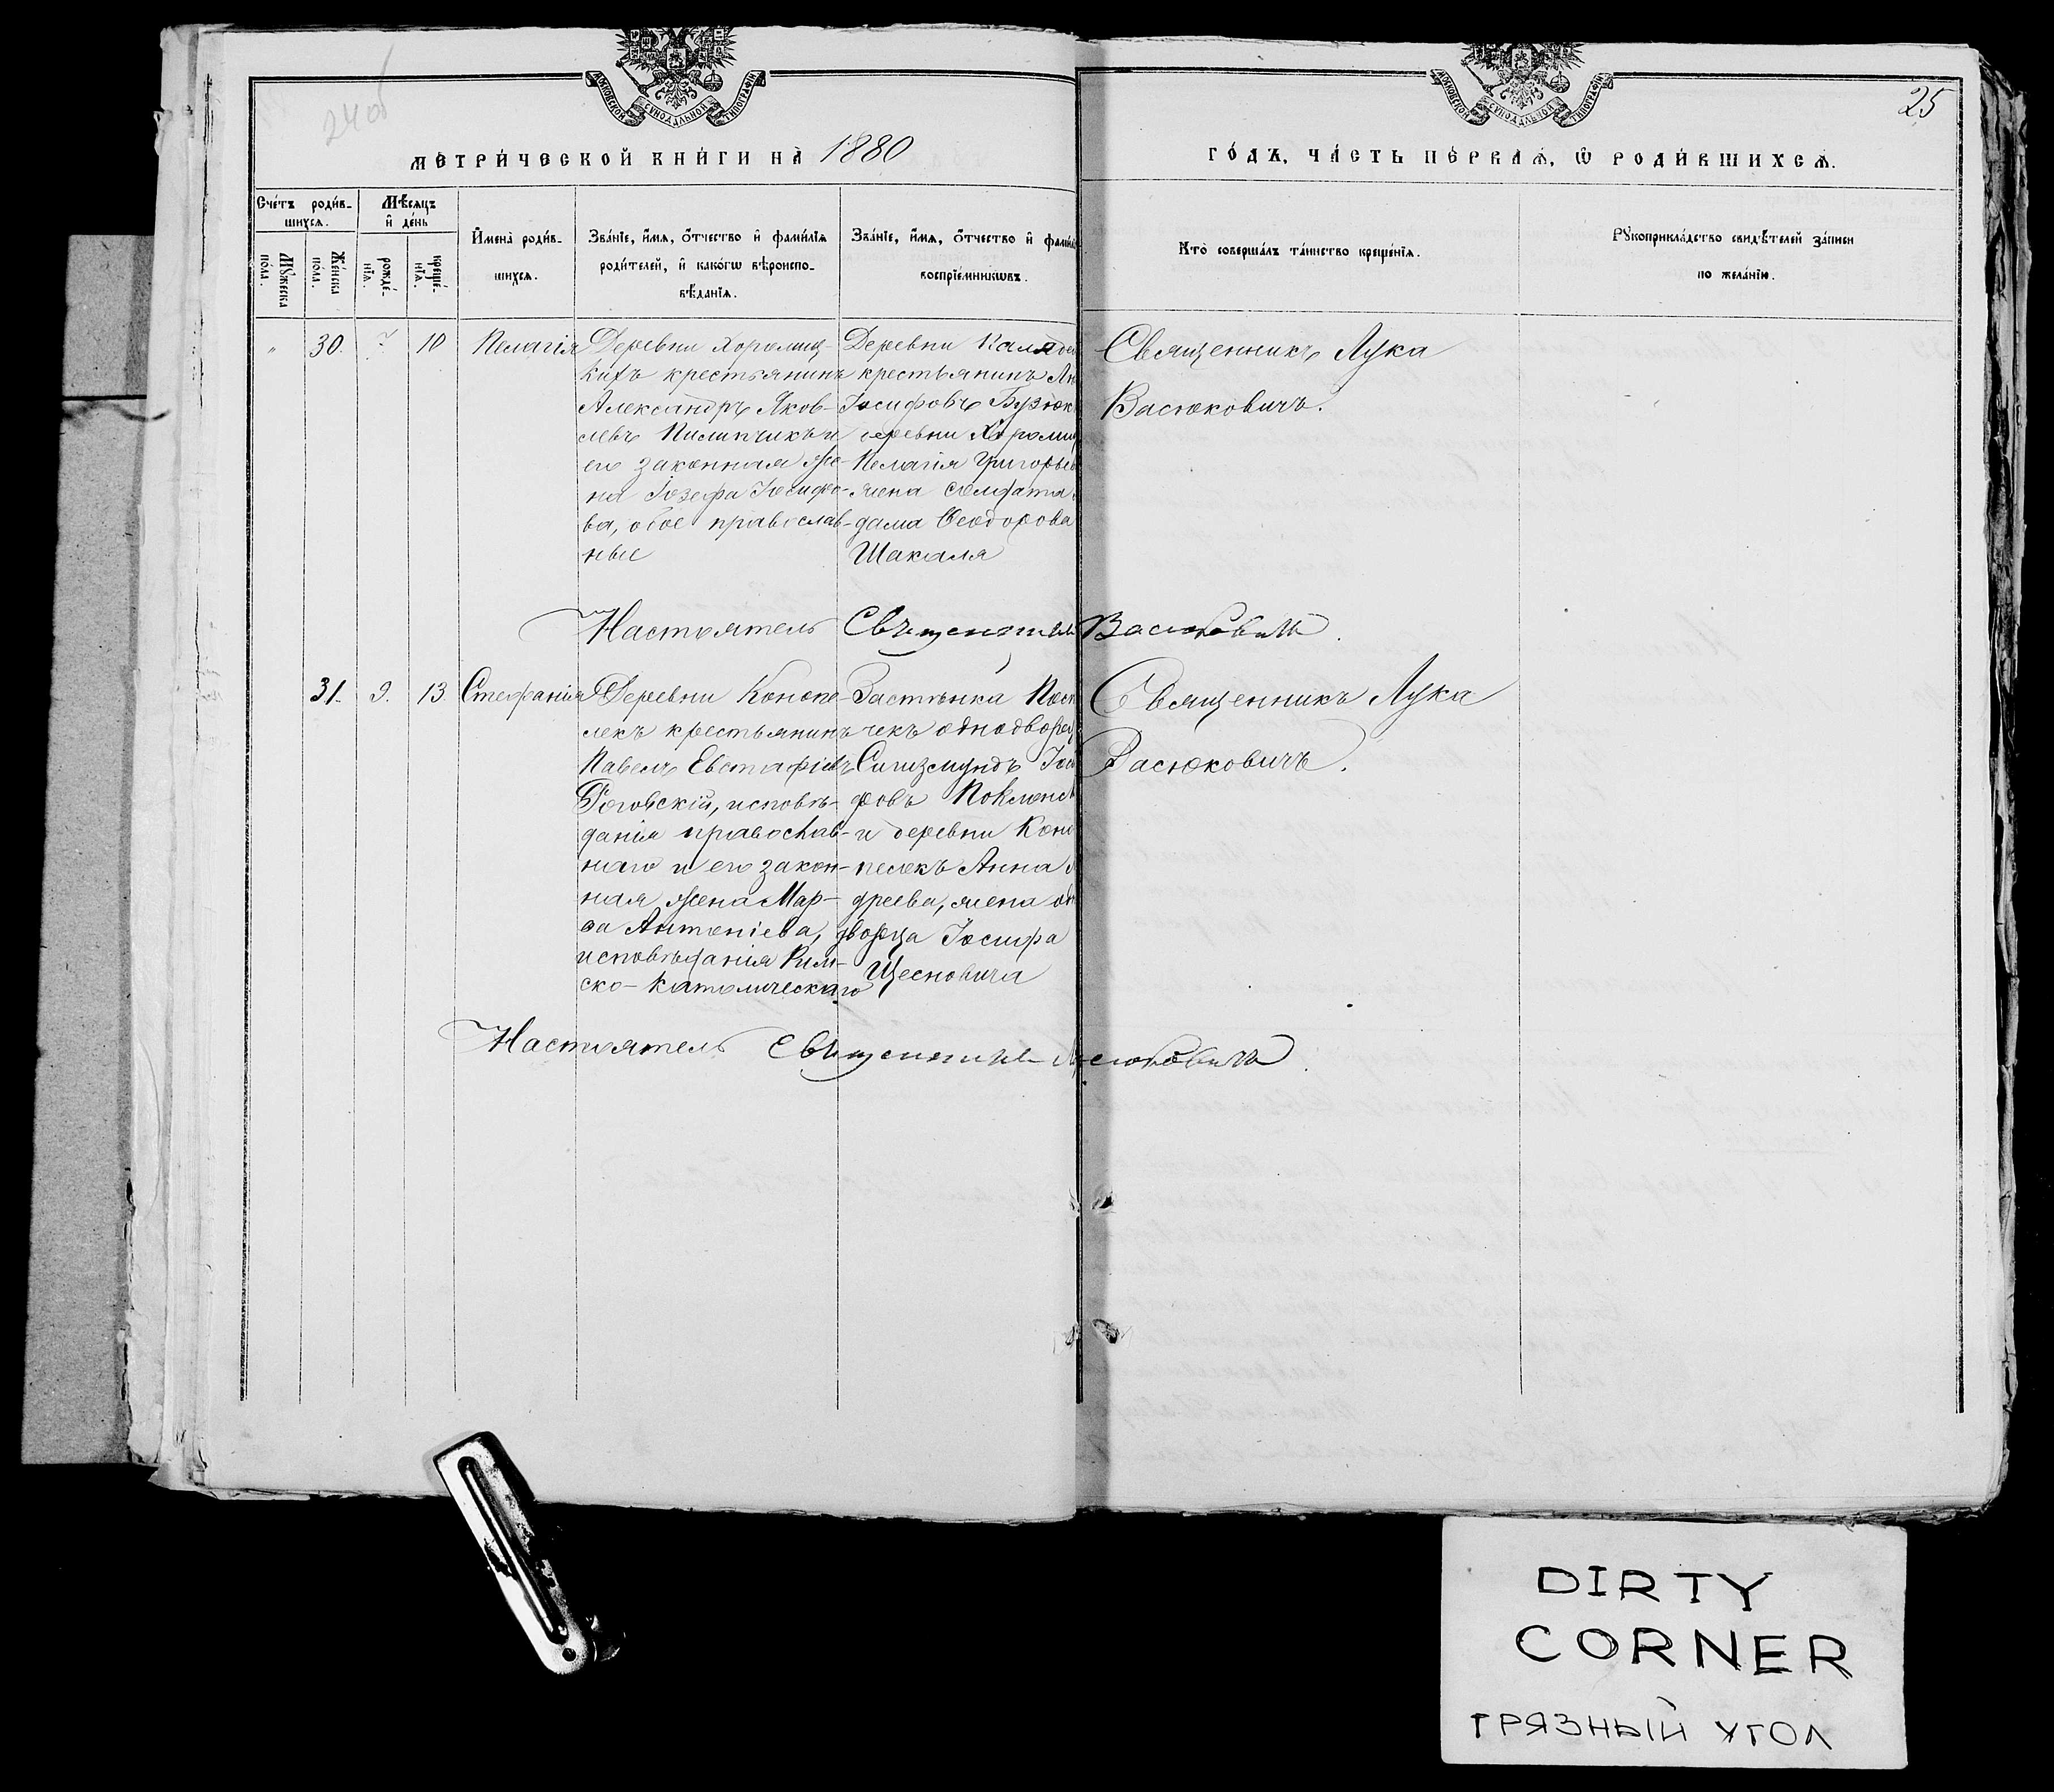 24 об
25
МОСКОВСКОЙ СѴНОДАЛЬНОЙ ТИПОГРАФІИ
МОСКОВСКОЙ СѴНОДАЛЬНОЙ ТИПОГРАФІИ
МЕТРИ́ЧЕСКОЙ КНИ́ГИ НА̀ 1880
ГО́ДЪ, ЧА́СТЬ ПЕ́РВАѦ, Ѡ҆ РОДИ́ВШИХСѦ.
Сче́тъ роди́в-
шихсѧ.
Мѣ́сѧцъ
и҆ де́нь
Му́жеска
по́ла.
Же́нска
по́ла.
рожде́-
нїѧ.
креще́-
нїѧ.
И҆мена̀ роди́в-
шихсѧ.
Зва́нїе, и҆́мѧ, ѻ҆́тчество и҆ фами́лїѧ
роди́телей, и҆ како́гѡ вѣроиспо-
вѣ́данїѧ.
Зва́нїе, и҆́мѧ, ѻ҆́тчество и҆ фами́лї
воспрїе́мникѡвъ.
Кто̀ соверша́лъ та́инство креще́нїѧ.
Рꙋкоприкла́дство свидѣ́телей за́писи
по жела́нїю.
30. 7 10 Пелагія
Деревни Хоромиц-
кихъ крестьянинъ
Александръ Яков-
левъ Пилипчикъ и
его законная же-
на Іозефа Іосифо-
ва, обое православ-
ные
Деревни
крестьянинъ
Іосифовъ
деревни Хоромиц
Пелагія Григорьев
жена солдата
дама Ѳеодорова
Шакаля
Священникъ Лука
Васюковичъ.
Настоятель Священникъ Васюковичъ.
31. 9. 13. Стефанія
Деревни Конопе-
лекъ крестьянинъ
Павелъ Евстафіевъ
Роговскій, исповѣ-
данія православ-
наго и его закон-
ная жена Мар-
ѳа Антоніева,
исповѣданія Рим-
ско-католическаго
Застѣнка
чекъ однодворец
Сигизмундъ Іоси
фовъ
и деревни Коно
пелекъ Анна
дреева, жена одн
дворца Іосифа
Щесновича
Священникъ Лука
Васюковичъ.
Настоятель Священникъ Васюковичъ.
DIRTY
CORNER
ГРЯЗНЫЙ УГОЛ